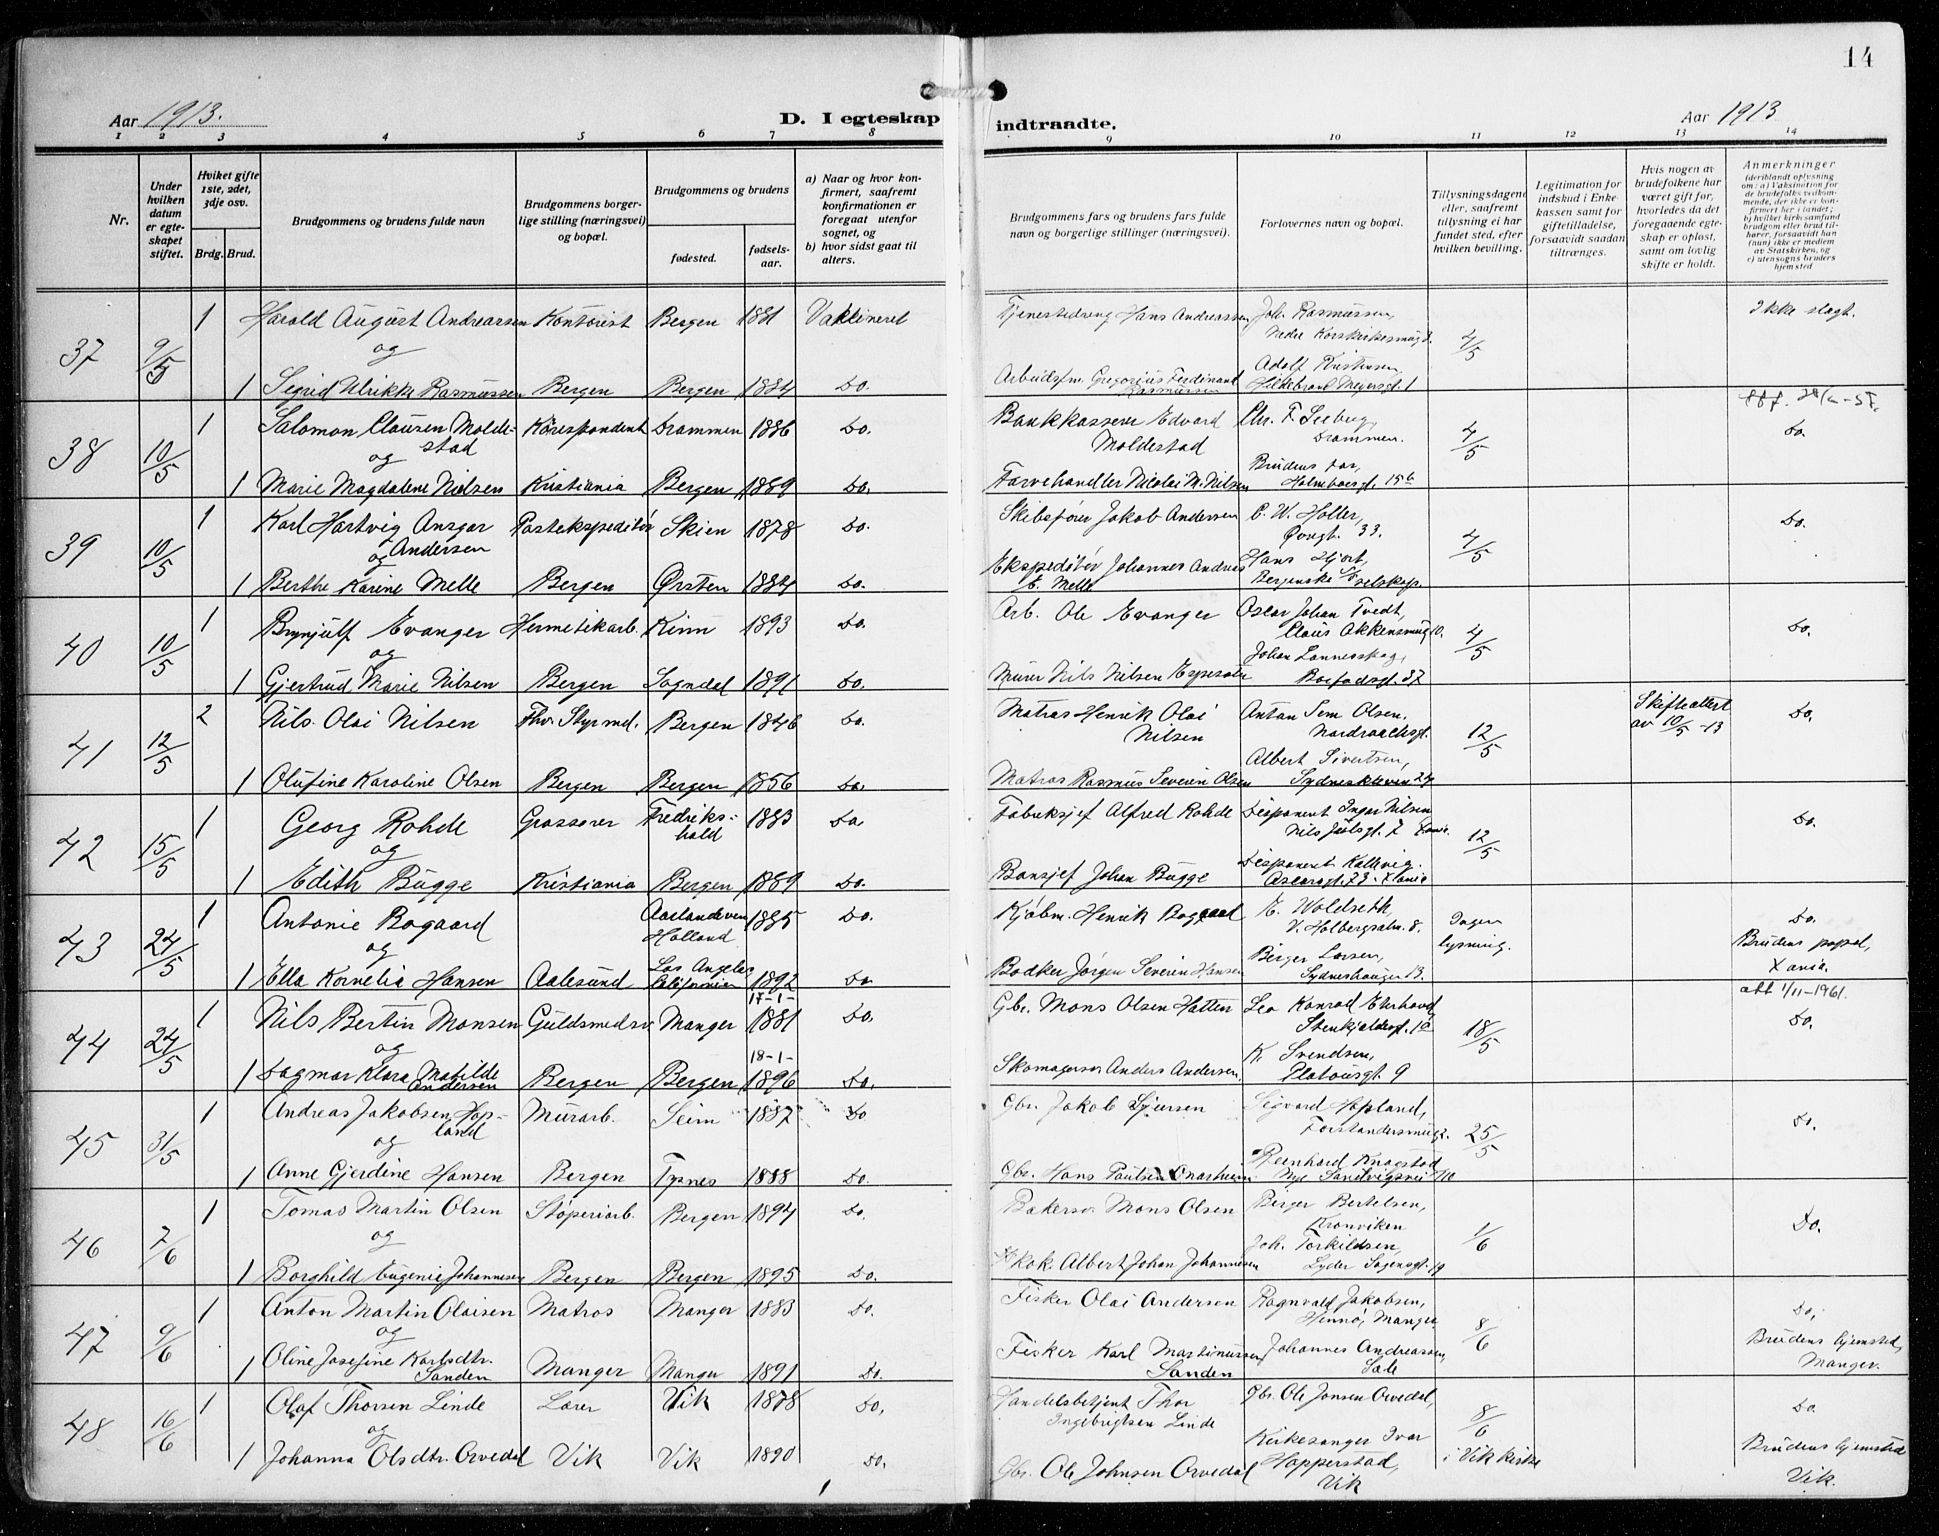 14
Aar 1913.
D. I egteskap indtraadte.
Aar 1913
1 2 3 4 5 6 7 8 9 10 11 12 13 14
Nr.
Under hvilken datum er egteskapet stiftet.
Hviket gifte 1ste, 2det, 3dje osv.
Brdg. Brud.
Brudgommens og brudens fulde navn
Brudgommens borgerlige stilling (næringsvei) og bopæl.
Brudgommens og brudens
fødested.
fødselsaar.
a) Naar og hvor konfirmert, saafremt konfirmationen er foregaat utenfor sognet, og
b) hvor sidst gaat til alters.
Brudgommens fars og brudens fars fulde navn og borgerlige stillinger (næringsvei).
Forlovernes navn og bopæl.
Tillysningsdagene eller, saafremt tillysning ei har fundet sted, efter hvilken bevilling.
Legitimation for indskud i Enkekassen samt for giftetilladelse, forsaavidt saadan tiltrænges.
Hvis nogen av brudefolkene har været gift før, hvorledes da det foregaaende egteskap er opløst, samt om lovlig skifte er holdt.
Anmerkninger
(deriblandt oplysning om: a) Vaksination for de brudefolks vedkommende, der ikke er konfirmert her i landet; b) hvilket kirkesamfund brudgom eller brud tilhører, forsaavidt han (hun) ikke er medlem av Statskirken, og c) utensogns bruders hjemsted
37 9/5 1 Harald August Andreassen Kontorist Bergen 1881 Vaksineret Tjenestedreng Hans Andreassen Joh. Rasmussen, Nedre Korskirkesmug 4/5 Ikke slegt.
og
1 Sigrid Ulrikke Rasmussen Bergen Bergen 1884 Do. Arbudsfm. Gregorius Ferdinand Rasmussen Adolf Kristensen, Hildebrand Meyersgt. 1
38 10/5 1 Salomon Clausen Moldestad Korespondent Drammen 1886 Do. Bankkasserer Edvard Moldestad Chr. F. Seeberg, Drammen. 4/5 Do.
og
1 Marie Magdalene Nielsen Kristiania Bergen 1889 Do. Farvehandler Nicolai M. Nilsen Brudens far, Holmboesgt. 15 b
39 10/5 1 Karl Hartvig Ansgar Andersen Postekspeditør Skien 1878 Do. Skibsfører Jakob Andersen C. W. Holler, Øvregt. 33. 4/5 Do.
og
1 Berthe Karine Melle Bergen Ørsten 1884 Do. Ekspeditør Johannes Andreas E. Melle Hans Hjort, Bergenske D/S selskap
40 10/5 1 Brynjulf Evanger Hermetikarb. Kinn 1893 Do. Arb. Ole Evanger Oscar Johan Tvedt, Claus Okkensmug 10. 4/5 Do.
og
1 Gjertrud Marie Nilsen Bergen Sogndal 1891 Do. Murer Nils Nilsen
41 12/5 2 Nils Olai Nilsen Fhv. Styrmd. Bergen 1846 Do. Matros Henrik Olai Nilsen Anton Sem Olsen, Nordraaksgt. 12/5 Skifteattest av 10/5 -13 Do.
1 Olufine Karoline Olsen Bergen Bergen 1856 Do. Matros Rasmus Severin Olsen Albert Sivertsen, Sydneskleven 24
42 15/5 1 Georg Rohde Grosserer Fredrikshald 1883 Do. Fabriksjef Alfred Rohde Disponent Inger Nilsen Nils Juelsgt. 7 Xania. 12/5 Do.
og
1 Edith Bugge Kristiania Bergen 1889 Do. Banksjef Johan Bugge Disponent Kallevig. Oscarsgt. 73. Xania
43 24/5 1 Antonie Bogaard Holland 1885 Do. Kjøbm. Henrik Bogaard E. Woldseth, V. Holbergsalm. 8. Ingen lysning. Do. Brudens bopæl, Xania.
og
1 Ella Kornelia Hansen Aalesund Los Angeles Kalifornien 1892 Do. Bødker Jørgen Severin Hansen Birger Larsen, Sydneshaugen 13.
44 24/5 1 Nils Bertin Monsen Guldsmedsv. Manger 17-1-1881 Do. Gbr. Mons Olsen Hatten Leo Konrad Ekrhovd, Stenkjeldersgt. 1a 18/5 att 1/11-1961. Do.
og
1 Dagmar Klara Matilde Andersen Bergen Bergen 18-1-1896 Do. Skomagersv. Anders Andersen. K. Svendsen, Platousgt. 9
45 31/5 1 Andreas Jakobsen Hopland Murarb. Seim 1887 Do Gbr. Jakob Sjursen Sigvard Hopland, Forstandersmug 2. 25/5 Do.
og
1 Anne Gjerdine Hansen Bergen Tysnes 1888 Do. Gbr. Hans Paulsen Onarheim Reinhard Knagstad Nye Sandviksvei 110
46 7/6 1 Tomas Martin Olsen Støperiarb. Bergen 1894 Do. Bakersv. Mons Olsen Birger Bertelsen, Kronviken 1/6 Do.
og
1 Borghild Eugenie Johannesen Bergen Bergen 1895 Do. Kok. Albert Johan Johannesen Joh. Torkildsen, Lyder Sagensgt. 19
47 9/6 1 Anton Martin Olaisen Matros Manger 1883 Do. Fisker Olai Andersen Ragnvald Jakobsen, Hinnø, Manger. 8/6 Do. Brudens hjemsted, Manger.
og
1 Oline Josefine Karlsdtr. Sanden Manger Manger 1891 Do. Fisker Karl Martinussen Sanden Johannes Andreassen, Sæle
48 16/6 1 Olaf Thorsen Linde Lærer Vik 1878 Do. Handelsbetjent Thor Ingebrigtsen Linde Gbr. Ole Jonsen Orvedal, 8/6 i Vik kirke Do. Brudens hjemsted Vik.
og
1 Johanna Olsdtr. Orvedal Vik Vik 1890 Do. Gbr. Ole Johnsen Orvedal Kirkesanger Ivar Hopperstad, Vik